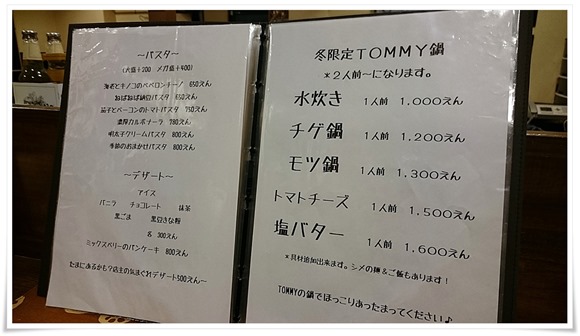 ～パスタ～
(大盛＋200　メガ盛＋400)
海老とキノコのペペロンチーノ　650えん
おばおば納豆パスタ　650えん
茄子とベーコンのトマトパスタ　750えん
濃厚カルボナーラ　780えん
明太子クリームパスタ　800えん
季節のおまかせパスタ　800えん
～デザート～
アイス
バニラ　チョコレート　抹茶
黒ごま　黒豆きな粉
各 300えん
ミックスベリーのパンケーキ　800えん
たまにあるかも？店主の気まぐれデザート500えん～
冬限定TOMMY鍋
＊２人前～になります。
水炊き　１人前　1.000えん
チゲ鍋　１人前　1.200えん
モツ鍋　１人前　1.300えん
トマトチーズ　１人前　1.500えん
塩バター　１人前　1.600えん
＊具材追加出来ます。シメの麺＆ご飯もあります！
TOMMYの鍋でほっこりあったまってください♪